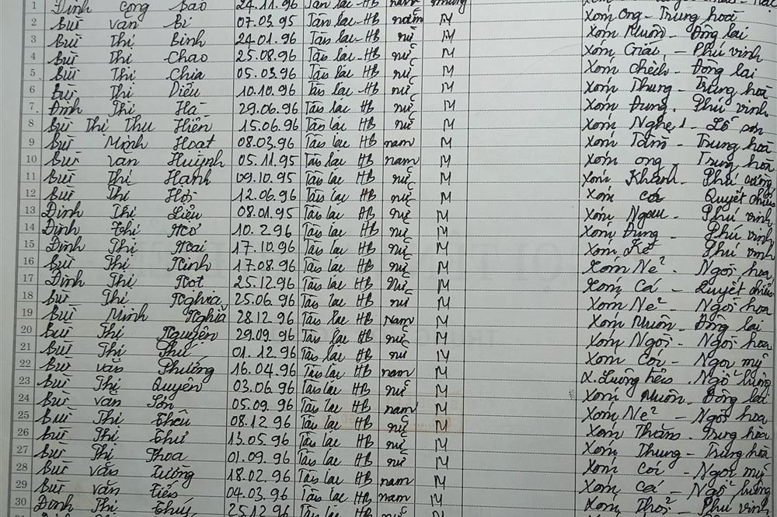 1 Đinh Công Bảo 24.11.96 Tân lạc HB nam Mường
2 Bùi Văn Bí 07.03.95 Tân lạc HB nam M Xóm Ong - Trung hoà
3 Bùi Thị Bình 24.01.96 Tân lạc HB nữ M Xóm Muôn - Đông lai
4 Bùi Thị Chao 25.08.96 Tân lạc HB nữ M Xóm Giác - Phú vinh
5 Bùi Thị Chia 05.03.96 Tân lạc HB nữ M Xóm - Đông lai
6 Bùi Thị Diều 10.10.96 Tân lạc HB nữ M Xóm Thung - Trung hoà
7 Đinh Thị Hà 29.06.96 Tân lạc HB nữ M Xóm Đung - Phú vinh
8 Bùi Thị Thu Hiền 15.06.96 Tân lạc HB nữ M Xóm Nghẹ 1 - Lỗ sơn
9 Bùi Minh Hoạt 08.03.96 Tân lạc HB nam M Xóm Tâm - Trung hoà
10 Bùi Văn Huỳnh 05.11.95 Tân lạc HB nam M Xóm Ong - Trung hoà
11 Bùi Thị Hạnh 09.10.95 Tân lạc HB nữ M Xóm Khánh - Phú cường
12 Bùi Thị Hợi 12.06.96 Tân lạc HB nữ M Xóm Cá - Quyết chiến
13 Đinh Thị Liễu 08.01.95 Tân lạc HB nữ M Xóm Ngau - Phú vinh
14 Đinh Thị Mơ 10.2.96 Tân lạc HB nữ M Xóm Đung - Phú vinh
15 Đinh Thị Noai 17.10.96 Tân lạc HB nữ M Xóm Kè - Phú vinh
16 Bùi Thị Ninh 17.08.96 Tân lạc HB nữ M Xóm Nẻ - Ngòi hoa
17 Đinh Thị Nọt 25.12.96 Tân lạc HB Nữ M Xóm Cá - Quyết chiến
18 Bùi Thị Nghĩa 25.06.96 Tân lạc HB nữ M Xóm Nẻ - Ngòi hoa
19 Bùi Minh Nghĩa 28.12.96 Tân lạc HB Nam M Xóm Muôn - Đông lai
20 Bùi Thị Nguyên 29.09.96 Tân lạc HB nữ M Xóm Ngòi - Ngòi hoa
21 Bùi Thị 01.12.96 Tân lạc HB nữ M Xóm Cóc - Ngọc mỹ
22 Bùi Văn Phường 16.04.96 Tân lạc HB nam M
23 Bùi Thị Quyên 03.06.96 Tân lạc HB nữ M X. Luông - Ngổ luông
24 Bùi Văn Sơn 05.09.96 Tân lạc HB nam M Xóm Muôn - Đông lai
25 Bùi Thị Thêu 08.12.96 Tân lạc HB nữ M Xóm Nẻ - Ngòi hoa
26 Bùi Thị Thư 13.05.96 Tân lạc HB nữ M Xóm Thăm - Trung hoà
27 Bùi Thị Thoa 01.09.96 Tân lạc HB nữ M Xóm Thung - Trung hoà
28 Bùi Văn Tường 18.02.96 Tân lạc HB nam M Xóm Cóc - Ngọc mỹ
29 Bùi Văn Tiến 04.03.96 Tân lạc HB nam M Xóm Cá - Ngổ luông
30 Đinh Thị Thúy 25.12.96 Tân lạc HB nữ M Xóm Thỏi - Phú vinh